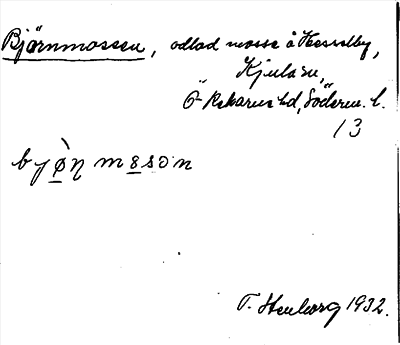 Björnmossen, odlad mosse å Hesselby,
Kjula sn,
Ö Rekarne hd, Söderm. l.
13
bjø̀ŋ mosɔn
T. Stenborg 1932.